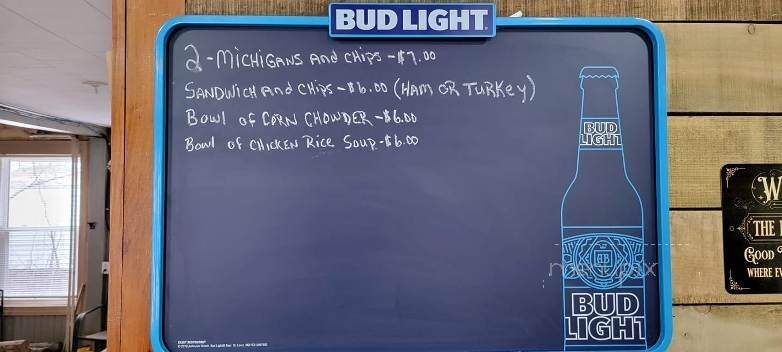 BUD LIGHT
2-MICHIGANS AND CHIPS - $7.00
SANDWICH AND CHIPS - $6.00 (HAM OR TURKEY)
BOWL OF CORN CHOWDER - $6.00
BOWL OF CHICKEN RICE SOUP - $6.00
BUD
LIGHT
AB
BUD
LIGHT
W
THE
GOOD
WHERE EV